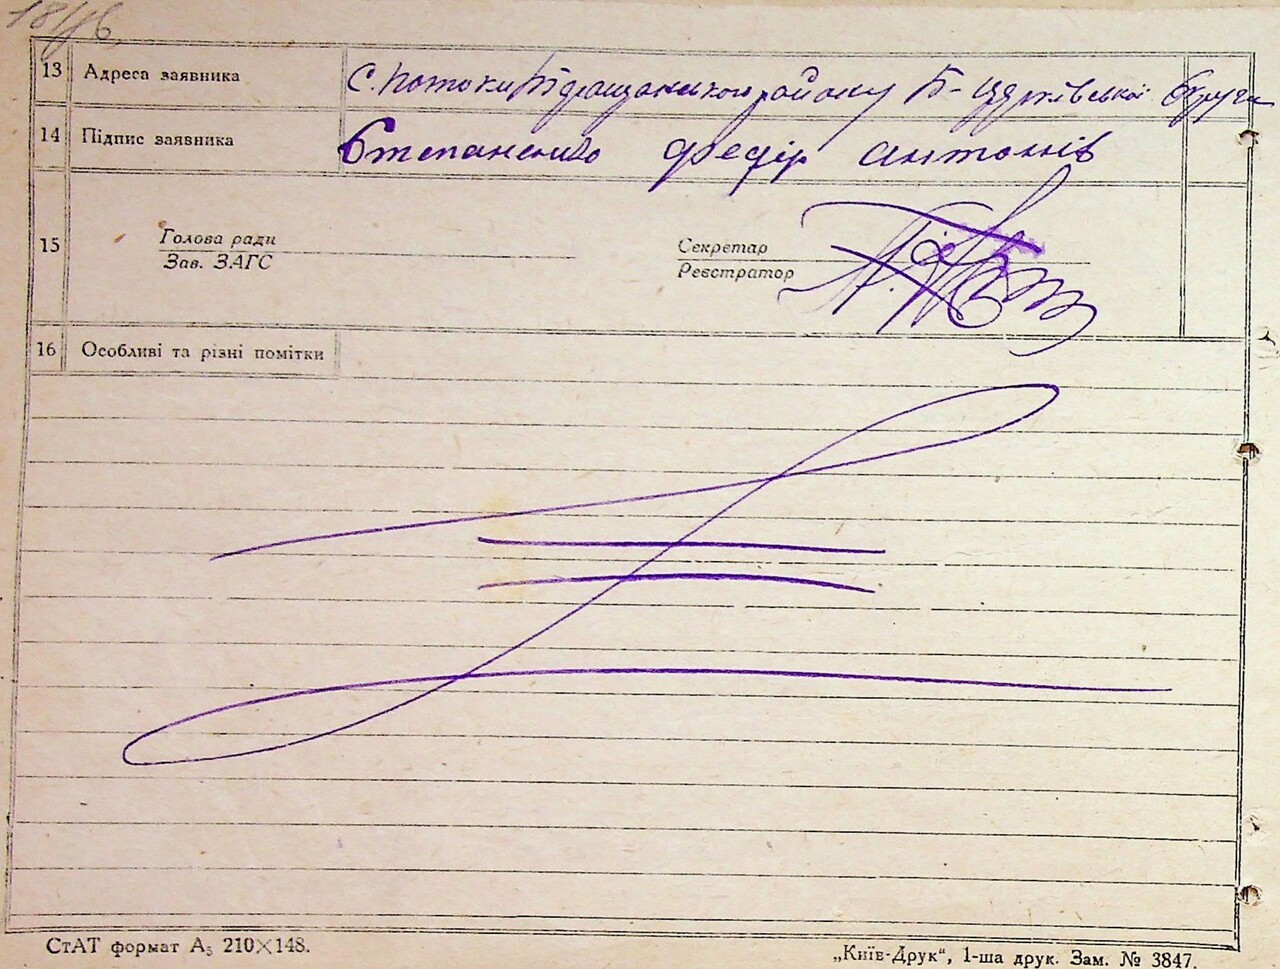 18/46
13 Адреса заявника С. Потоки Підращанського району Б-Церківської округи
14 Підпис заявника Степаненко Федір Антонів
15 Голова ради Секретар
Зав. ЗАГС Реєстратор
16 Особливі та різні помітки
СтАТ формат А5 210×148.
„Київ-Друк“, 1-ша друк. Зам. № 3847.